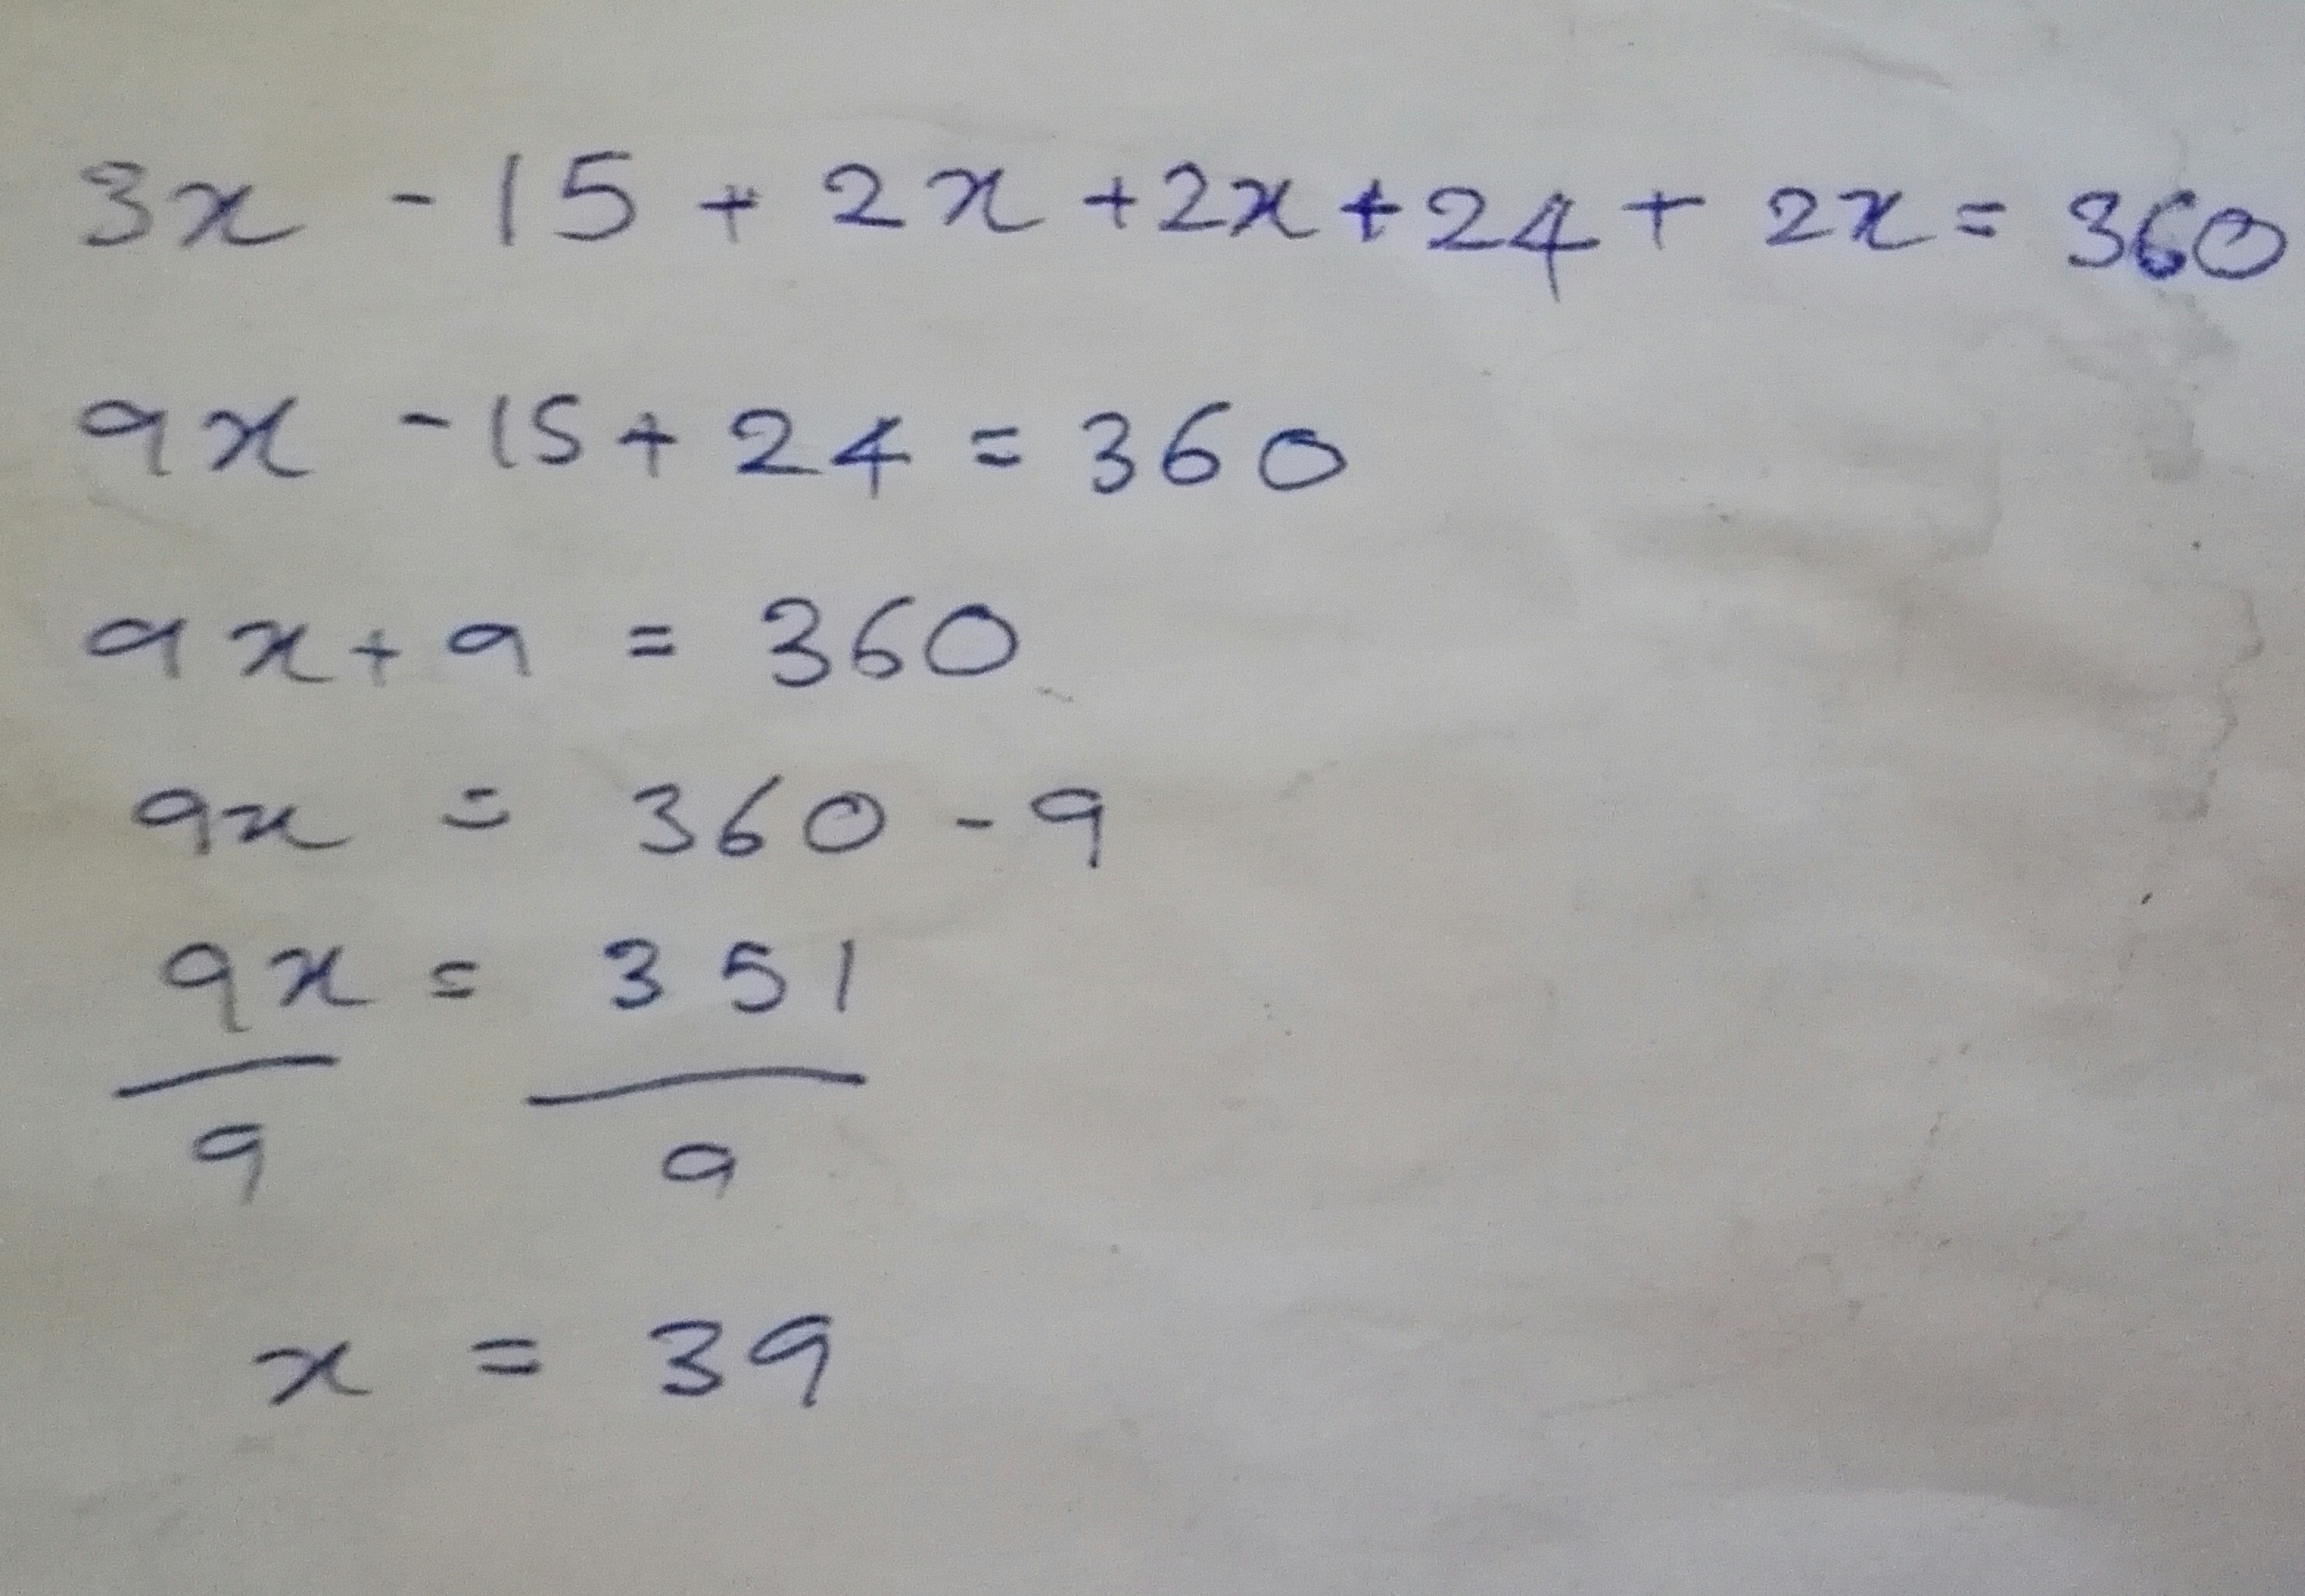 3x - 15 + 2x + 2x + 24 + 2x = 360
9x - 15 + 24 = 360
9x + 9 = 360
9x = 360 - 9
9x = 351
9 9
x = 39